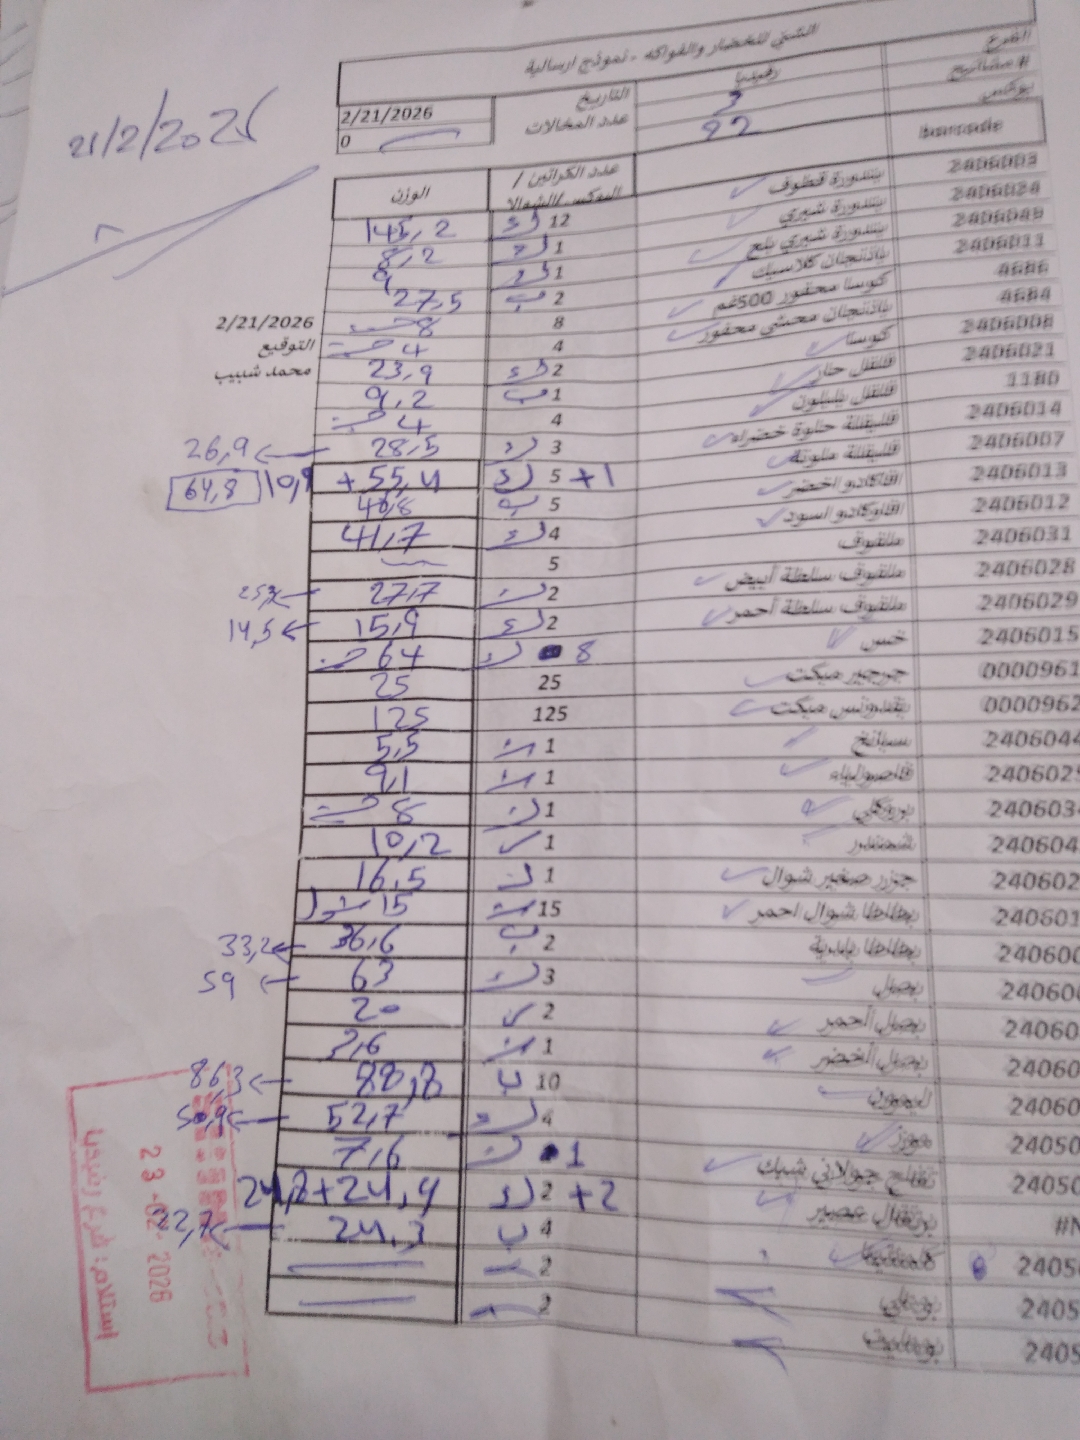 الشني للخضار والفواكه - نموذج ارسالية
الفرع رفيديا التاريخ 2/21/2026
# مشاتيح 3 عدد المخالات 0
بوكس 22
21/2/2026
barcode عدد الكراتين / البوكس/الشوال الوزن
2406003 بندورة قطوف 12 145,2
2406024 بندورة شيري 1 8,2
2406049 بندورة شيري بلح 1 9
2406011 باذنجان كلاسيك 2 27,5
4686 كوسا محفور 500غم 8 8
4684 باذنجان محشي محفور 4 4
2406008 كوسا 2 23,9
2406021 فلفل حار 1 9,2
1180 فلفل 4 4
2406014 فليفلة حلوة خضراء 3 28,5 26,9
2406007 فليفلة ملونة 5 +1 +55,4 10,9 64,8
2406013 افاكادو اخضر 5 40,8
2406012 افوكادو اسود 4 41,7
2406031 ملفوف 5
2406028 ملفوف سلطة أبيض 2 27,7
2406029 ملفوف سلطة أحمر 2 15,9 14,5
2406015 خس 8 64
0000961 جرجير ميكت 25 25
0000962 بقدونس ميكت 125 125
240604 سبانخ 1 5,5
240602 فاصولياء 1 9,1
240603 بروكلي 1 8
240604 شمندر 1 10,2
240602 جزر صغير شوال 1 16,5
240601 بطاطا شوال احمر 15 15 شوال
24060 بطاطا بلدية 2 36,6 33,2
24060 بصل 3 63 59
24060 بصل أحمر 2 20
24060 بصل أخضر 1 3,6
24060 ليمون 10 88,8 86,3
24050 موز 4 52,7 50,9
24050 تفاح جولاني شبك 1 7,6
#N برتقال عصير 2 +2 24,8+24,9
2405 كلمنتينا 4 24,3 22,7
2405 2
2405 2
2/21/2026
التوقيع
محمد شبيب
23-02-2026
استلام: فرع رفيديا